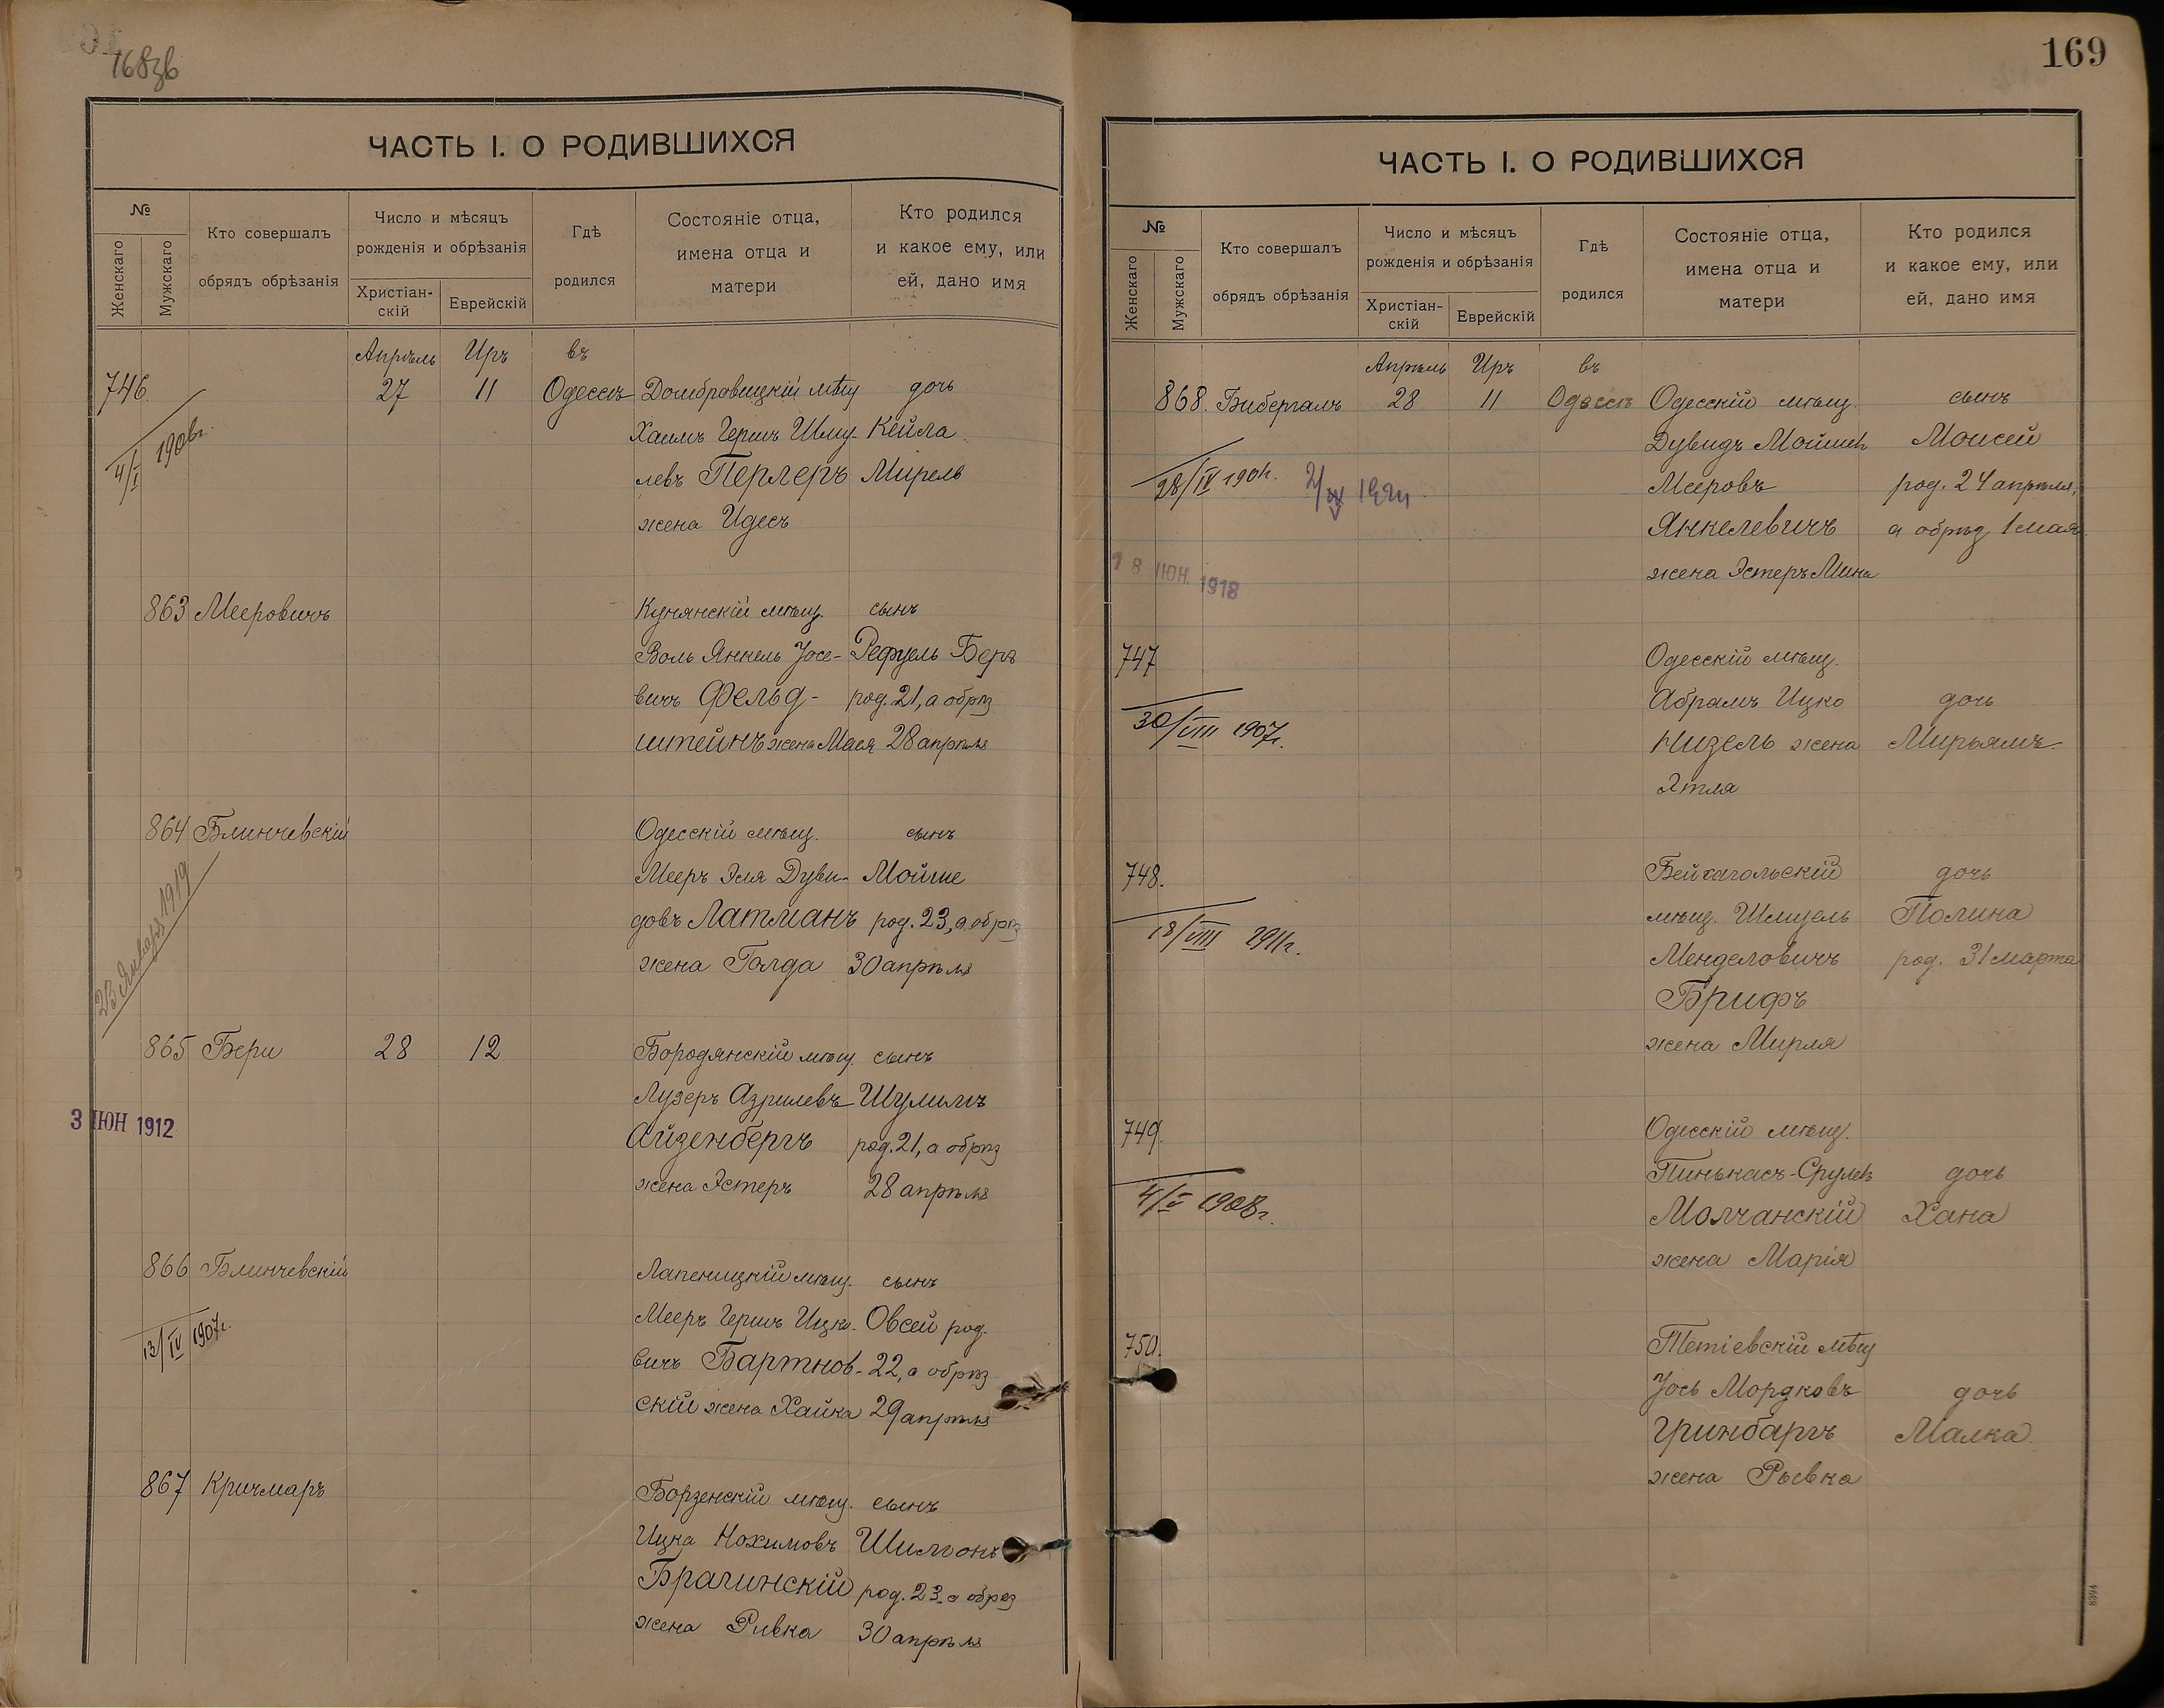 168зв
ЧАСТЬ I. О РОДИВШИХСЯ
№
Женскаго
Мужскаго
Кто совершалъ
обрядъ обрѣзанія
Число и мѣсяцъ
рожденія и обрѣзанія
Христіан-
скій
Еврейскій
Гдѣ
родился
Состояніе отца,
имена отца и
матери
Кто родился
и какое ему, или
ей, дано имя
Апрѣль Иръ въ
746. 27 11 Одессѣ Домбровицкій мѣщ дочь
Хаимъ Гершъ Шму- Кейла
левъ Перлеръ Мирель
жена Идесъ
4/I 1906г.
863 Мееровичъ Кунянскій мѣщ. сынъ
Воль Янкель Іосе- Рефуель Беръ
вичъ Фельд- род. 21, а обрѣз
штейнъ жена Мася 28 апрѣля
864 Блинчевскій Одесскій мѣщ. сынъ
Мееръ Эля Дуви- Мойше
довъ Латманъ род. 23, а обрѣз
жена Голда 30 апрѣля
23 Января 1919
865 Бери 28 12 Бородянскій мѣщ. сынъ
Лузеръ Азрилевъ Шулимъ
Айзенбергъ род. 21, а обрѣз
жена Эстеръ 28 апрѣля
3 ІЮН 1912
866 Блинчевскій Лапеницкій мѣщ. сынъ
Мееръ Гершъ Ицко- Овсей род.
вичъ Бартнов- 22, а обрѣз
скій жена Хайка 29 апрѣля
13/IV 1907г.
867 Кричмаръ Борзенскій мѣщ. сынъ
Ицка Нохимовъ Шимонъ
Брагинскій род. 23 а обрѣз
жена Ривка 30 апрѣля
169
ЧАСТЬ I. О РОДИВШИХСЯ
№
Женскаго
Мужскаго
Кто совершалъ
обрядъ обрѣзанія
Число и мѣсяцъ
рожденія и обрѣзанія
Христіан-
скій
Еврейскій
Гдѣ
родился
Состояніе отца,
имена отца и
матери
Кто родился
и какое ему, или
ей, дано имя
Апрѣль Иръ въ
868. Бибергалъ 28 11 Одессѣ Одесскій мѣщ. сынъ
Дувидъ Мойше Моисей
Мееровъ род. 24 апрѣля,
Янкелевичъ а обрѣз 1 мая
жена Эстеръ Мина
28/IV 190
18 ІЮН. 1918
747 Одесскій мѣщ.
Абрамъ Ицко дочь
Низель жена Мирьямъ
Этля
30/VIII 1907г.
748. дочь
мѣщ. Шмуель Полина
Менделовичъ род. 31 марта
Брифъ
жена Мирля
18/VIII 1911г.
749. Одесскій мѣщ.
Пинькасъ-Срулевъ дочь
Молчанскій Хана
жена Марія
4/V 1908г.
750. Тетіевскій мѣщ
Іось Мордковъ дочь
Гринбаргъ Малка
жена Рывка